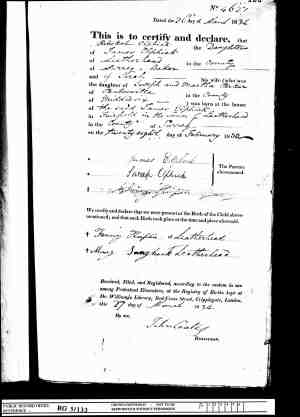 No 4621
Dated the 20th day of March 1832
This is to certify and declare, that
Rebekah Elphick the Daughter
of James Elphick
of Leatherhead in the County
of Surrey Baker
and of Sarah his wife (who was
the daughter of Joseph and Martha
of in the County
of Middlesex) was born at the house
of the said James Elphick
in Fairfield in the Town of Leatherhead
in the County of Surrey
on the twenty eight day of February 1832
James Elphick
Sarah Elphick
The Parents
abovenamed.
We certify and declare that we were present at the Birth of the Child above
mentioned; and that such Birth took place at the time and place aforesaid.
Leatherhead
Mary Leatherhead
Received, Filed, and Registered, according to the custom in use
among Protestant Dissenters, at the Registry of Births kept at
Dr. Williams's Library, Red-Cross Street, Cripplegate, London,
the 27 day of March 1832
By me,
Registrar.
PUBLIC RECORD OFFICE
REFERENCE
RG 5/133
COPYRIGHT NOT TO BE
REPRODUCED WITHOUT PERMISSION